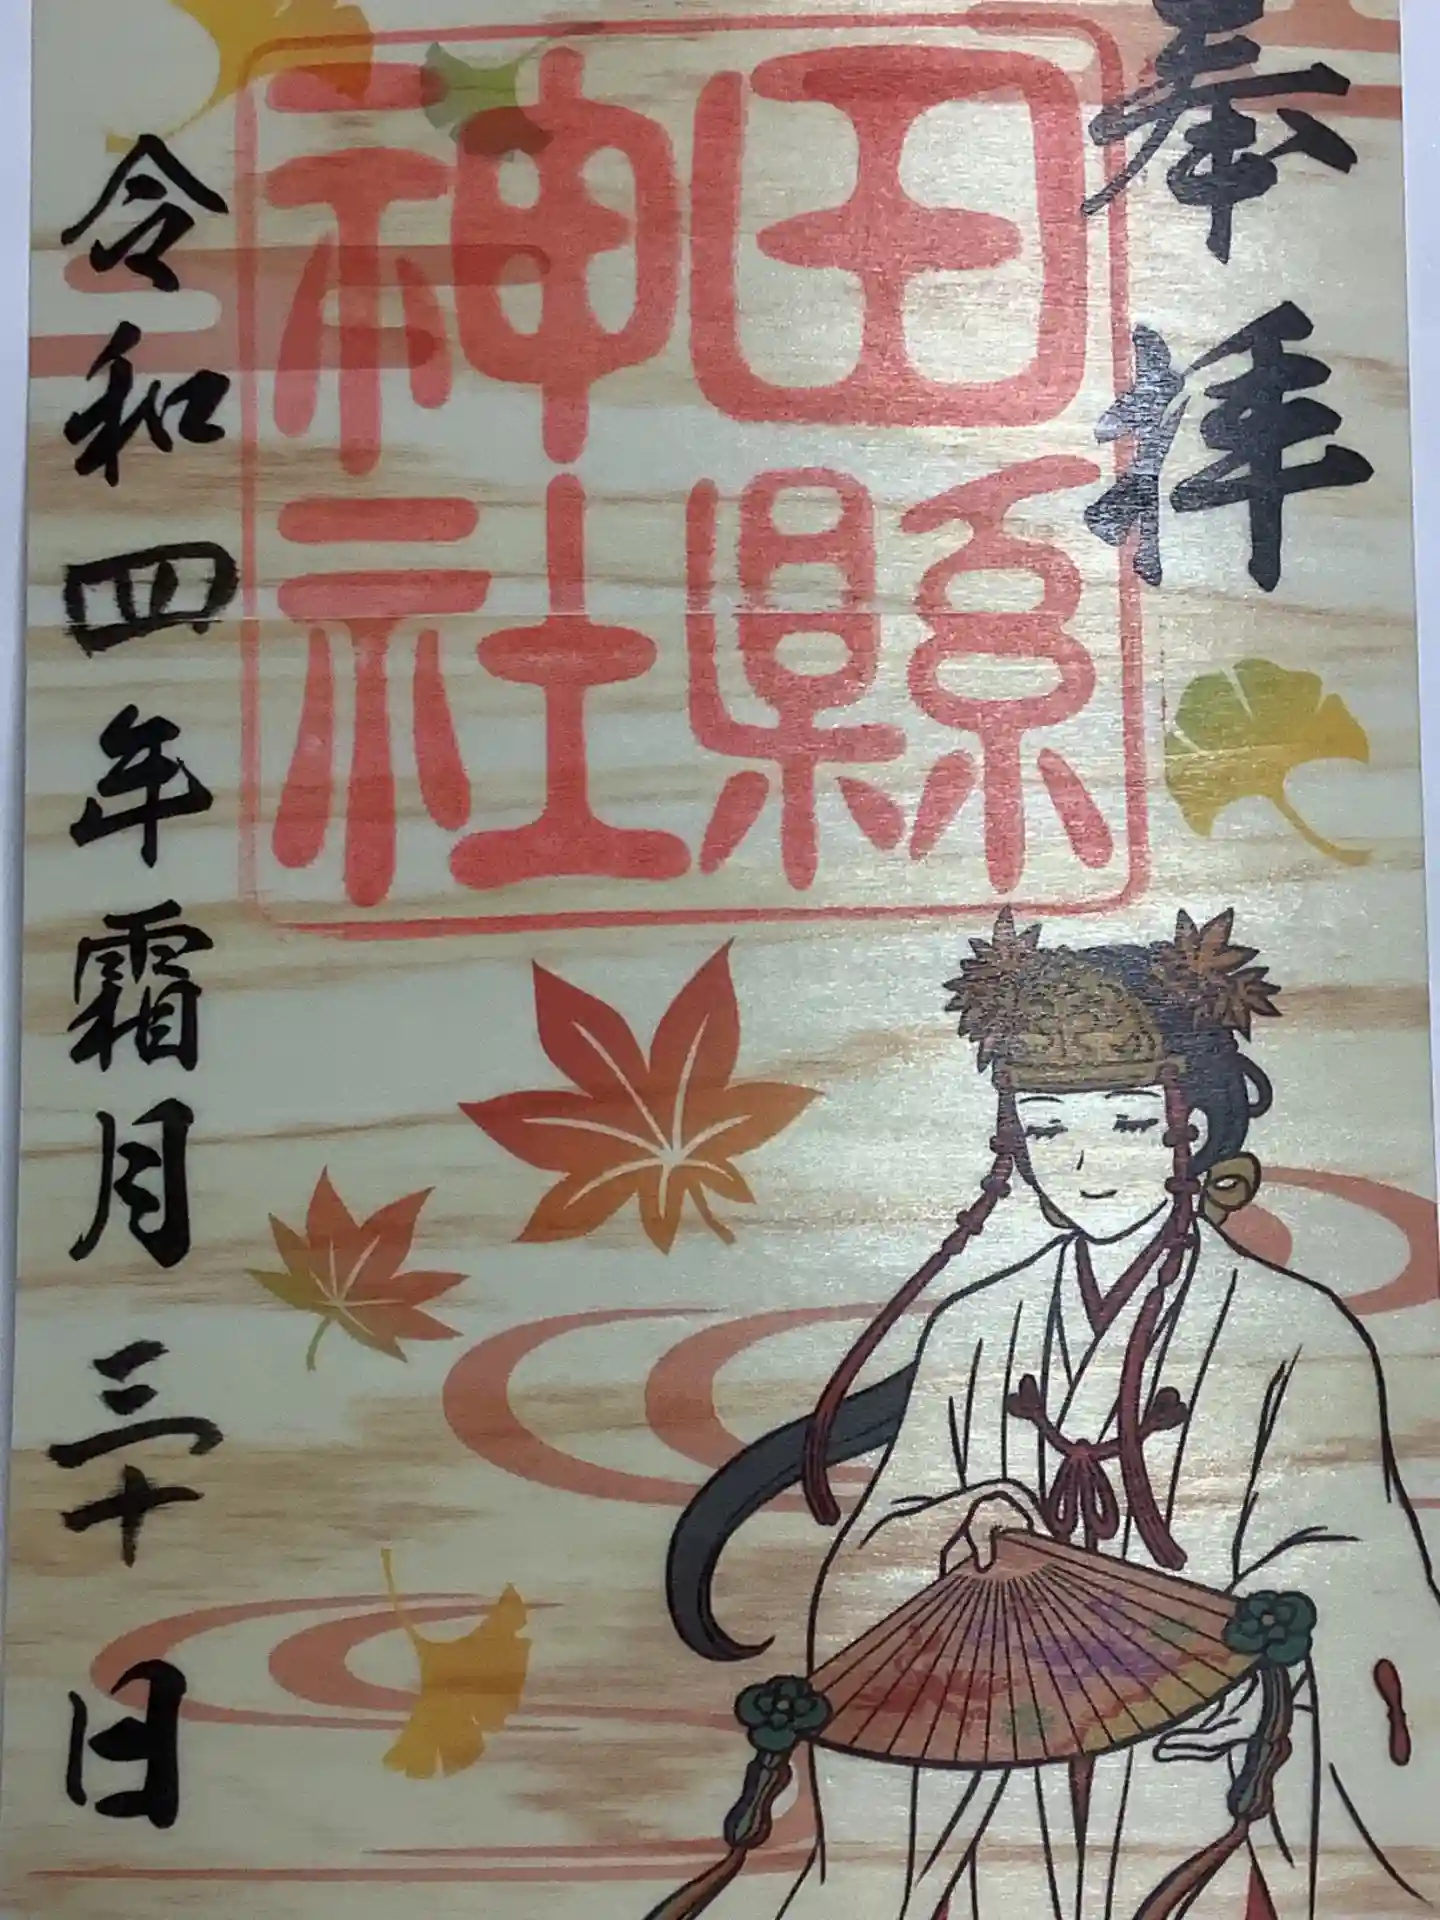 奉拝
田縣
神社
令和四年霜月三十日